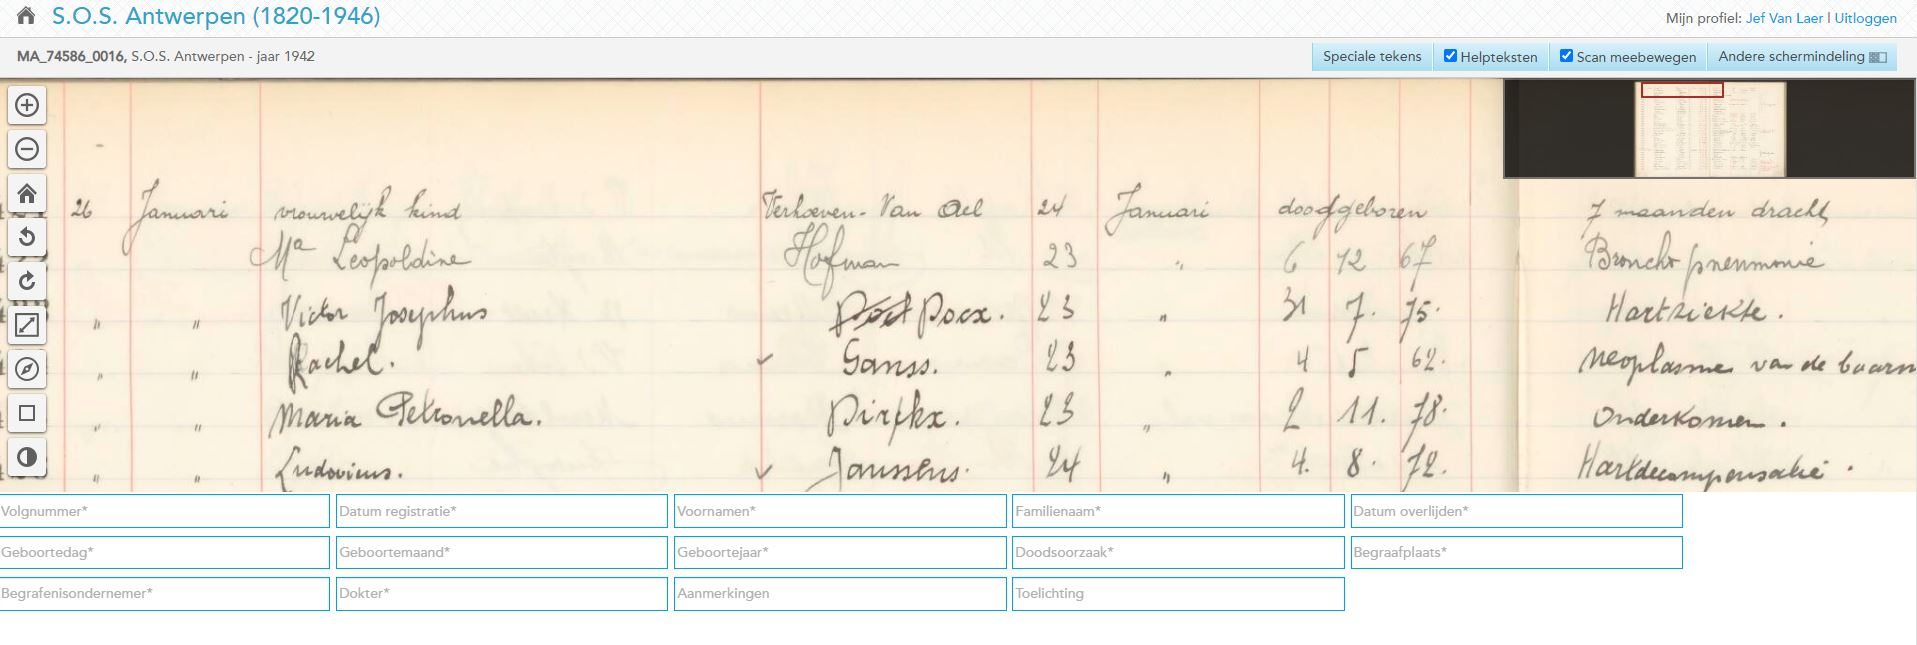 S.O.S. Antwerpen (1820-1946)
Mijn profiel: Jef Van Laer | Uitloggen
MA_74586_0016, S.O.S. Antwerpen - jaar 1942
Speciale tekens Helpteksten Scan meebewegen Andere schermindeling
26 Januari vrouwelijk kind Verhoeven - Van Oel 24 Januari doodgeboren 7 maanden dracht
Ma Leopoldine Hofman 23 " 6 12 67 Broncho pneumonie
" " Victor Josephus Pocx. 23 " 31 7. 75. Hartziekte.
" " Rachel. ✓ Ganss. 23 " 4 5 62. Neoplasme van de baarm
" " Maria Petronella. 23 " 2 11. 78. Onderkomen.
" " Ludovicus. ✓ Janssens. 24 " 4. 8. 72. Hartdecompensatie.
Volgnummer* Datum registratie* Voornamen* Familienaam* Datum overlijden*
Geboortedag* Geboortemaand* Geboortejaar* Doodsoorzaak* Begraafplaats*
Begrafenisondernemer* Dokter* Aanmerkingen Toelichting